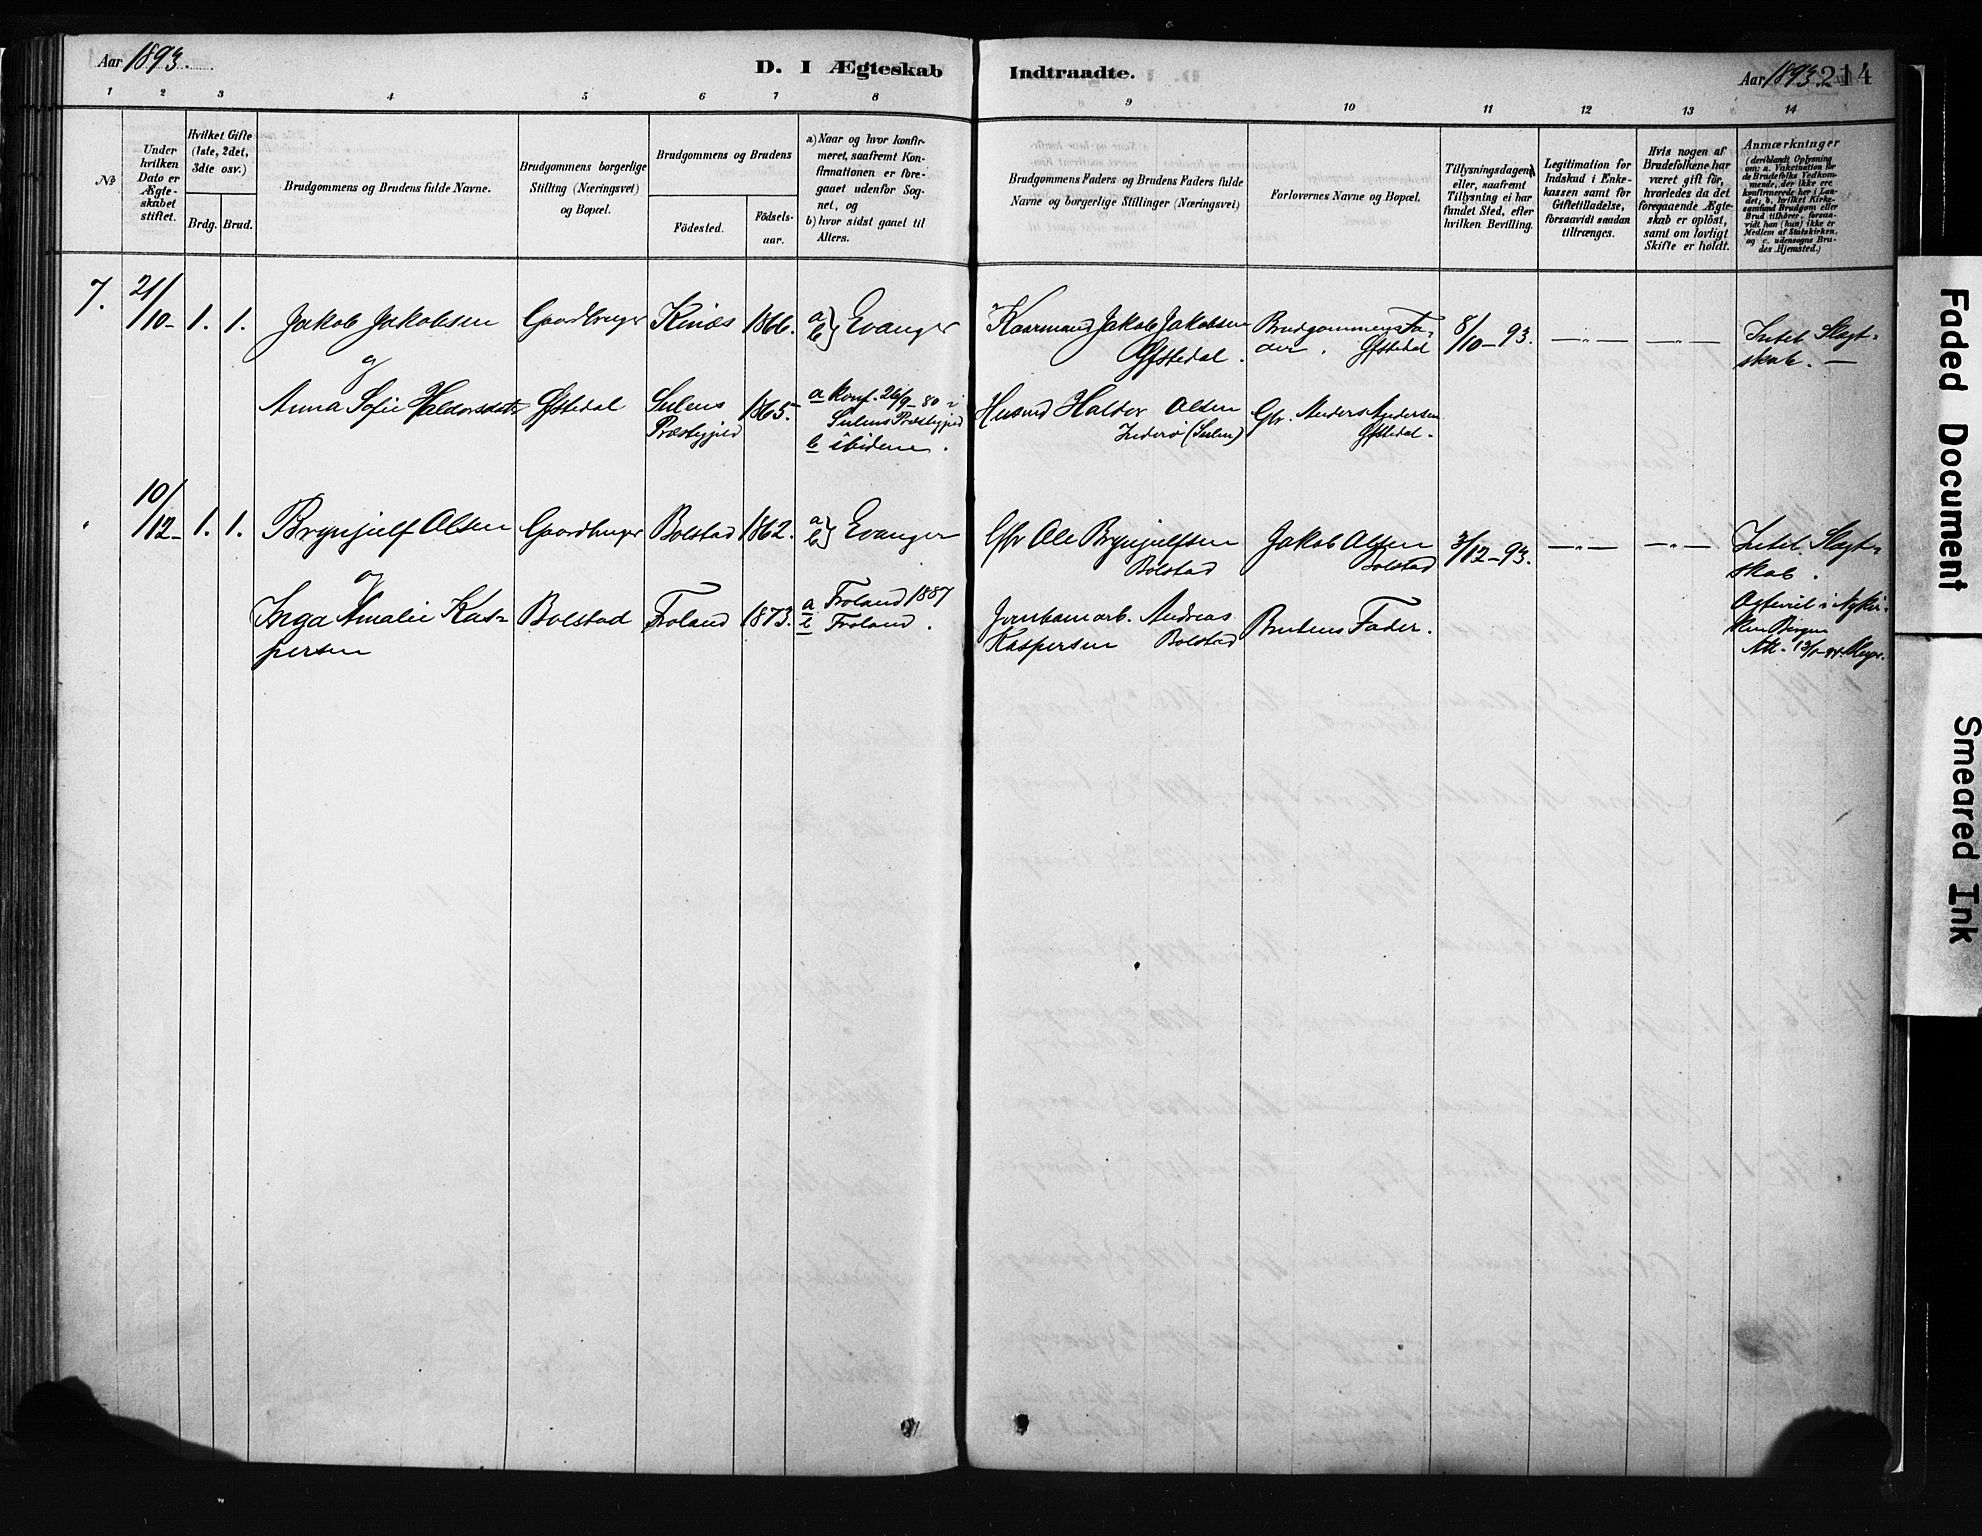 Aar 1893.
D. I Ægteskab
Indtraadte.
Aar 1893. 214
1 2 3 4 5 6 7 8 9 10 11 12 13 14
№
Under
hvilken
Dato er
Ægte-
skabet
stiftet.
Hvilket Gifte
(1ste, 2det,
3die osv.)
Brdg. Brud.
Brudgommens og Brudens fulde Navne.
Brudgommens borgerlige
Stilling (Næringsvei)
og Bopæl.
Brudgommens og Brudens
Fødested.
Fødsels-
aar.
a) Naar og hvor konfir-
meret, saafremt Kon-
firmationen er fore-
gaaet udenfor Sog-
net, og
b) hvor sidst gaaet til
Alters.
Brudgommens Faders og Brudens Faders fulde
Navne og borgerlige Stillinger (Næringsvei)
Forlovernes Navne og Bopæl.
Tillysningsdagene,
eller, saafremt
Tillysning ei har
fundet Sted, efter
hvilken Bevilling.
Legitimation for
Indskud i Enke-
kassen samt for
Giftetilladelse,
forsaavidt saadan
tiltrænges.
Hvis nogen af
Brudefolkene har
været gift før,
hvorledes da det
foregaaende Ægte-
skab er opløst,
samt om lovligt
Skifte er holdt.
Anmærkninger
(deriblandt Oplysning
om: a. Vaksination for
de Brudefolks Vedkom-
mende, der ikke ere
konfirmerede her i Lan-
det; b. hvilket Kirke-
samfund Brudgom eller
Brud tilhører, forsaa-
vidt han (hun) ikke er
Medlem af Statskirken,
og c. udensogns Bru-
des Hjemsted.)
7. 21/10- 1. 1. Jakob Jakobsen Gaardbruger Kinæs 1866. a b} Evanger
Kaarmand Jakob Jakobsen
Øfstedal.
Brudgommens Fa-
der. Øfstedal
8/10-93. —„— —„— Intet Slægt-
skab. —
og
Anna Sofie Haldorsdatr Øfstedal Sulens
Præstegjeld
1865. a konf. 26/9-80 i
Sulens Præstegjeld
b ibidem.
Husmd Haldor Olsen
Inderø (Sulen)
Gbr. Anders Andersen
Øfstedal.
„ 10/12- 1. 1. Brynjulf Olsen Gaardbruger Bolstad 1862. a b} Evanger
Gbr Ole Brynjulfsen
Bolstad
Jakob Olsen
Bolstad
3/12-93. —„— —„— Intet Slægt-
skab.
og
Inga Amalie Kas-
persen
Bolstad Froland 1873. a Froland 1887
b Froland.
Jernbanearb. Andreas
Kaspersen Bolstad
Brudens Fader.
Ogteviet i Nykir-
ken Bergen
Att. 13/1-94.
Faded Document
Smeared Ink